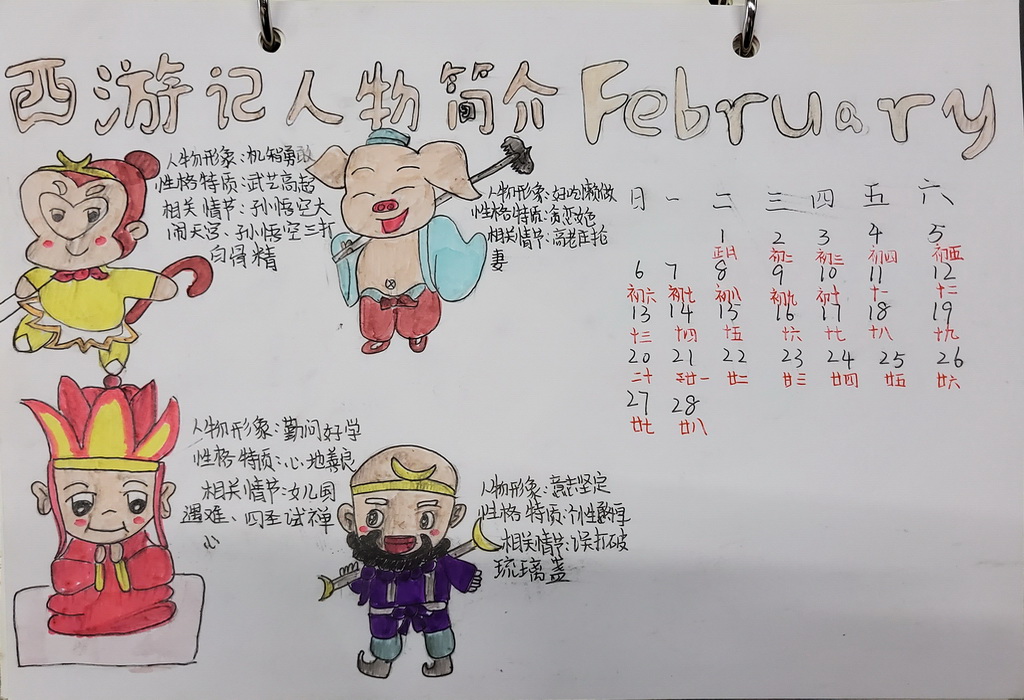 西游记人物简介 February
人物形象:机智勇敢
性格特质:武艺高超
相关情节:孙悟空大
闹天宫、孙悟空三打
白骨精
人物形象:好吃懒做
性格特质:贪恋女色
相关情节:高老庄抢
妻
人物形象:勤问好学
性格特质:心地善良
相关情节:女儿国
遇难、四圣试禅
心
人物形象:意志坚定
性格特质:个性
相关情节:误打破
琉璃盏
日 一 二 三 四 五 六
1 2 3 4 5
正月 初二 初三 初四 初五
6 7 8 9 10 11 12
初六 初七 初八 初九 初十 十一 十二
13 14 15 16 17 18 19
十三 十四 十五 十六 十七 十八 十九
20 21 22 23 24 25 26
二十 廿一 廿二 廿三 廿四 廿五 廿六
27 28
廿七 廿八